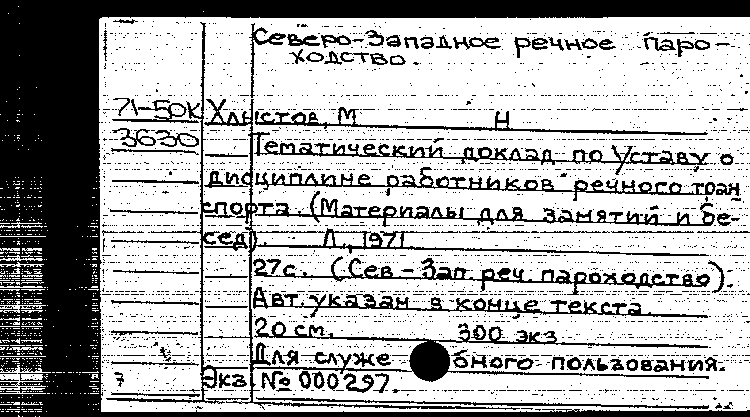 Северо-Западное речное паро-
ходство.
71-50К Хлыстов, М Н
3630 Тематический доклад по Уставу о
дисциплине работников речного тран
спорта. (Материалы для занятий и бе-
сед). Л., 1971
27с. (Сев-Зап. реч. пароходство).
Авт. указан в конце текста
20 см. 300 экз.
Для служебного пользования.
7 Экз. № 000297.